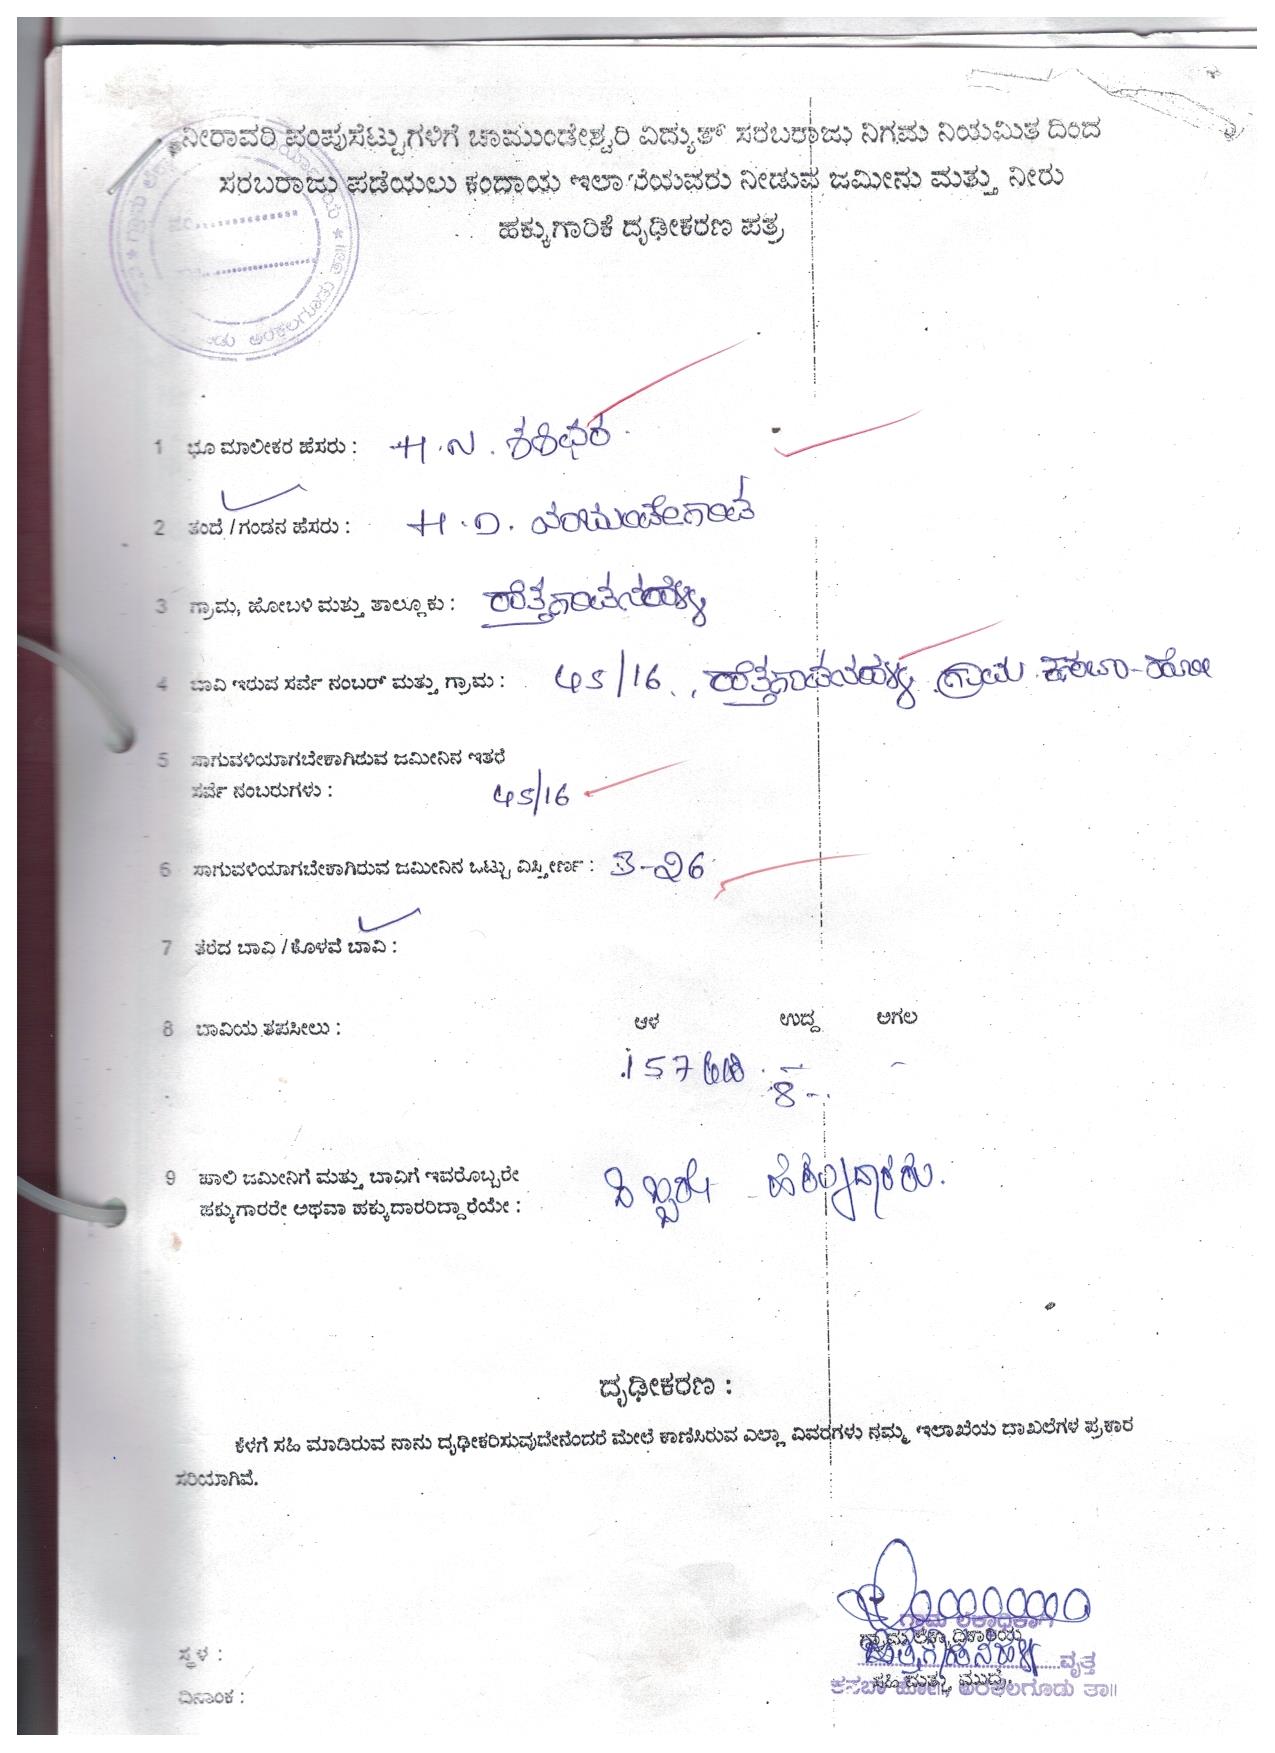 ನೀರಾವರಿ ಪಂಪುಸೆಟ್ಟುಗಳಿಗೆ ಚಾಮುಂಡೇಶ್ವರಿ ವಿದ್ಯುತ್ ಸರಬರಾಜು ನಿಗಮ ನಿಯಮಿತ ದಿಂದ
ಸರಬರಾಜು ಪಡೆಯಲು ಕಂದಾಯ ಇಲಾಖೆಯವರು ನೀಡುವ ಜಮೀನು ಮತ್ತು ನೀರು
ಹಕ್ಕುಗಾರಿಕೆ ದೃಢೀಕರಣ ಪತ್ರ
1 ಭೂ ಮಾಲೀಕರ ಹೆಸರು : H.N. ಶಶಿಧರ
2 ತಂದೆ / ಗಂಡನ ಹೆಸರು : H.D.
3 ಗ್ರಾಮ, ಹೋಬಳಿ ಮತ್ತು ತಾಲ್ಲೂಕು :
4 ಬಾವಿ ಇರುವ ಸರ್ವೆ ನಂಬರ್ ಮತ್ತು ಗ್ರಾಮ : 45/16, ಗ್ರಾಮ ಕಸಬಾ-ಹೋ
5 ಸಾಗುವಳಿಯಾಗಬೇಕಾಗಿರುವ ಜಮೀನಿನ ಇತರೆ
ಸರ್ವೆ ನಂಬರುಗಳು : 45/16
6 ಸಾಗುವಳಿಯಾಗಬೇಕಾಗಿರುವ ಜಮೀನಿನ ಒಟ್ಟು ವಿಸ್ತೀರ್ಣ : 3-26
7 ತೆರೆದ ಬಾವಿ / ಕೊಳವೆ ಬಾವಿ :
8 ಬಾವಿಯ ತಪಸೀಲು : ಆಳ ಉದ್ದ ಅಗಲ
157 ಅಡಿ - -
8
9 ಖಾಲಿ ಜಮೀನಿಗೆ ಮತ್ತು ಬಾವಿಗೆ ಇವರೊಬ್ಬರೇ
ಹಕ್ಕುಗಾರರೇ ಅಥವಾ ಹಕ್ಕುದಾರರಿದ್ದಾರೆಯೇ :
ದೃಢೀಕರಣ :
ಕೆಳಗೆ ಸಹಿ ಮಾಡಿರುವ ನಾನು ದೃಢೀಕರಿಸುವುದೇನೆಂದರೆ ಮೇಲೆ ಕಾಣಿಸಿರುವ ಎಲ್ಲಾ ವಿವರಗಳು ನಮ್ಮ ಇಲಾಖೆಯ ದಾಖಲೆಗಳ ಪ್ರಕಾರ
ಸರಿಯಾಗಿವೆ.
ಗ್ರಾಮ ಲೆಕ್ಕಾಧಿಕಾರಿ
ಗ್ರಾಮ ಲೆಕ್ಕಾಧಿಕಾರಿಯ
ಸ್ಥಳ : ವೃತ್ತ
ಸಹಿ ಮತ್ತು ಮುದ್ರೆ
ದಿನಾಂಕ : ಕಸಬಾ ಹೋ||, ಅರಕಲಗೂಡು ತಾ||